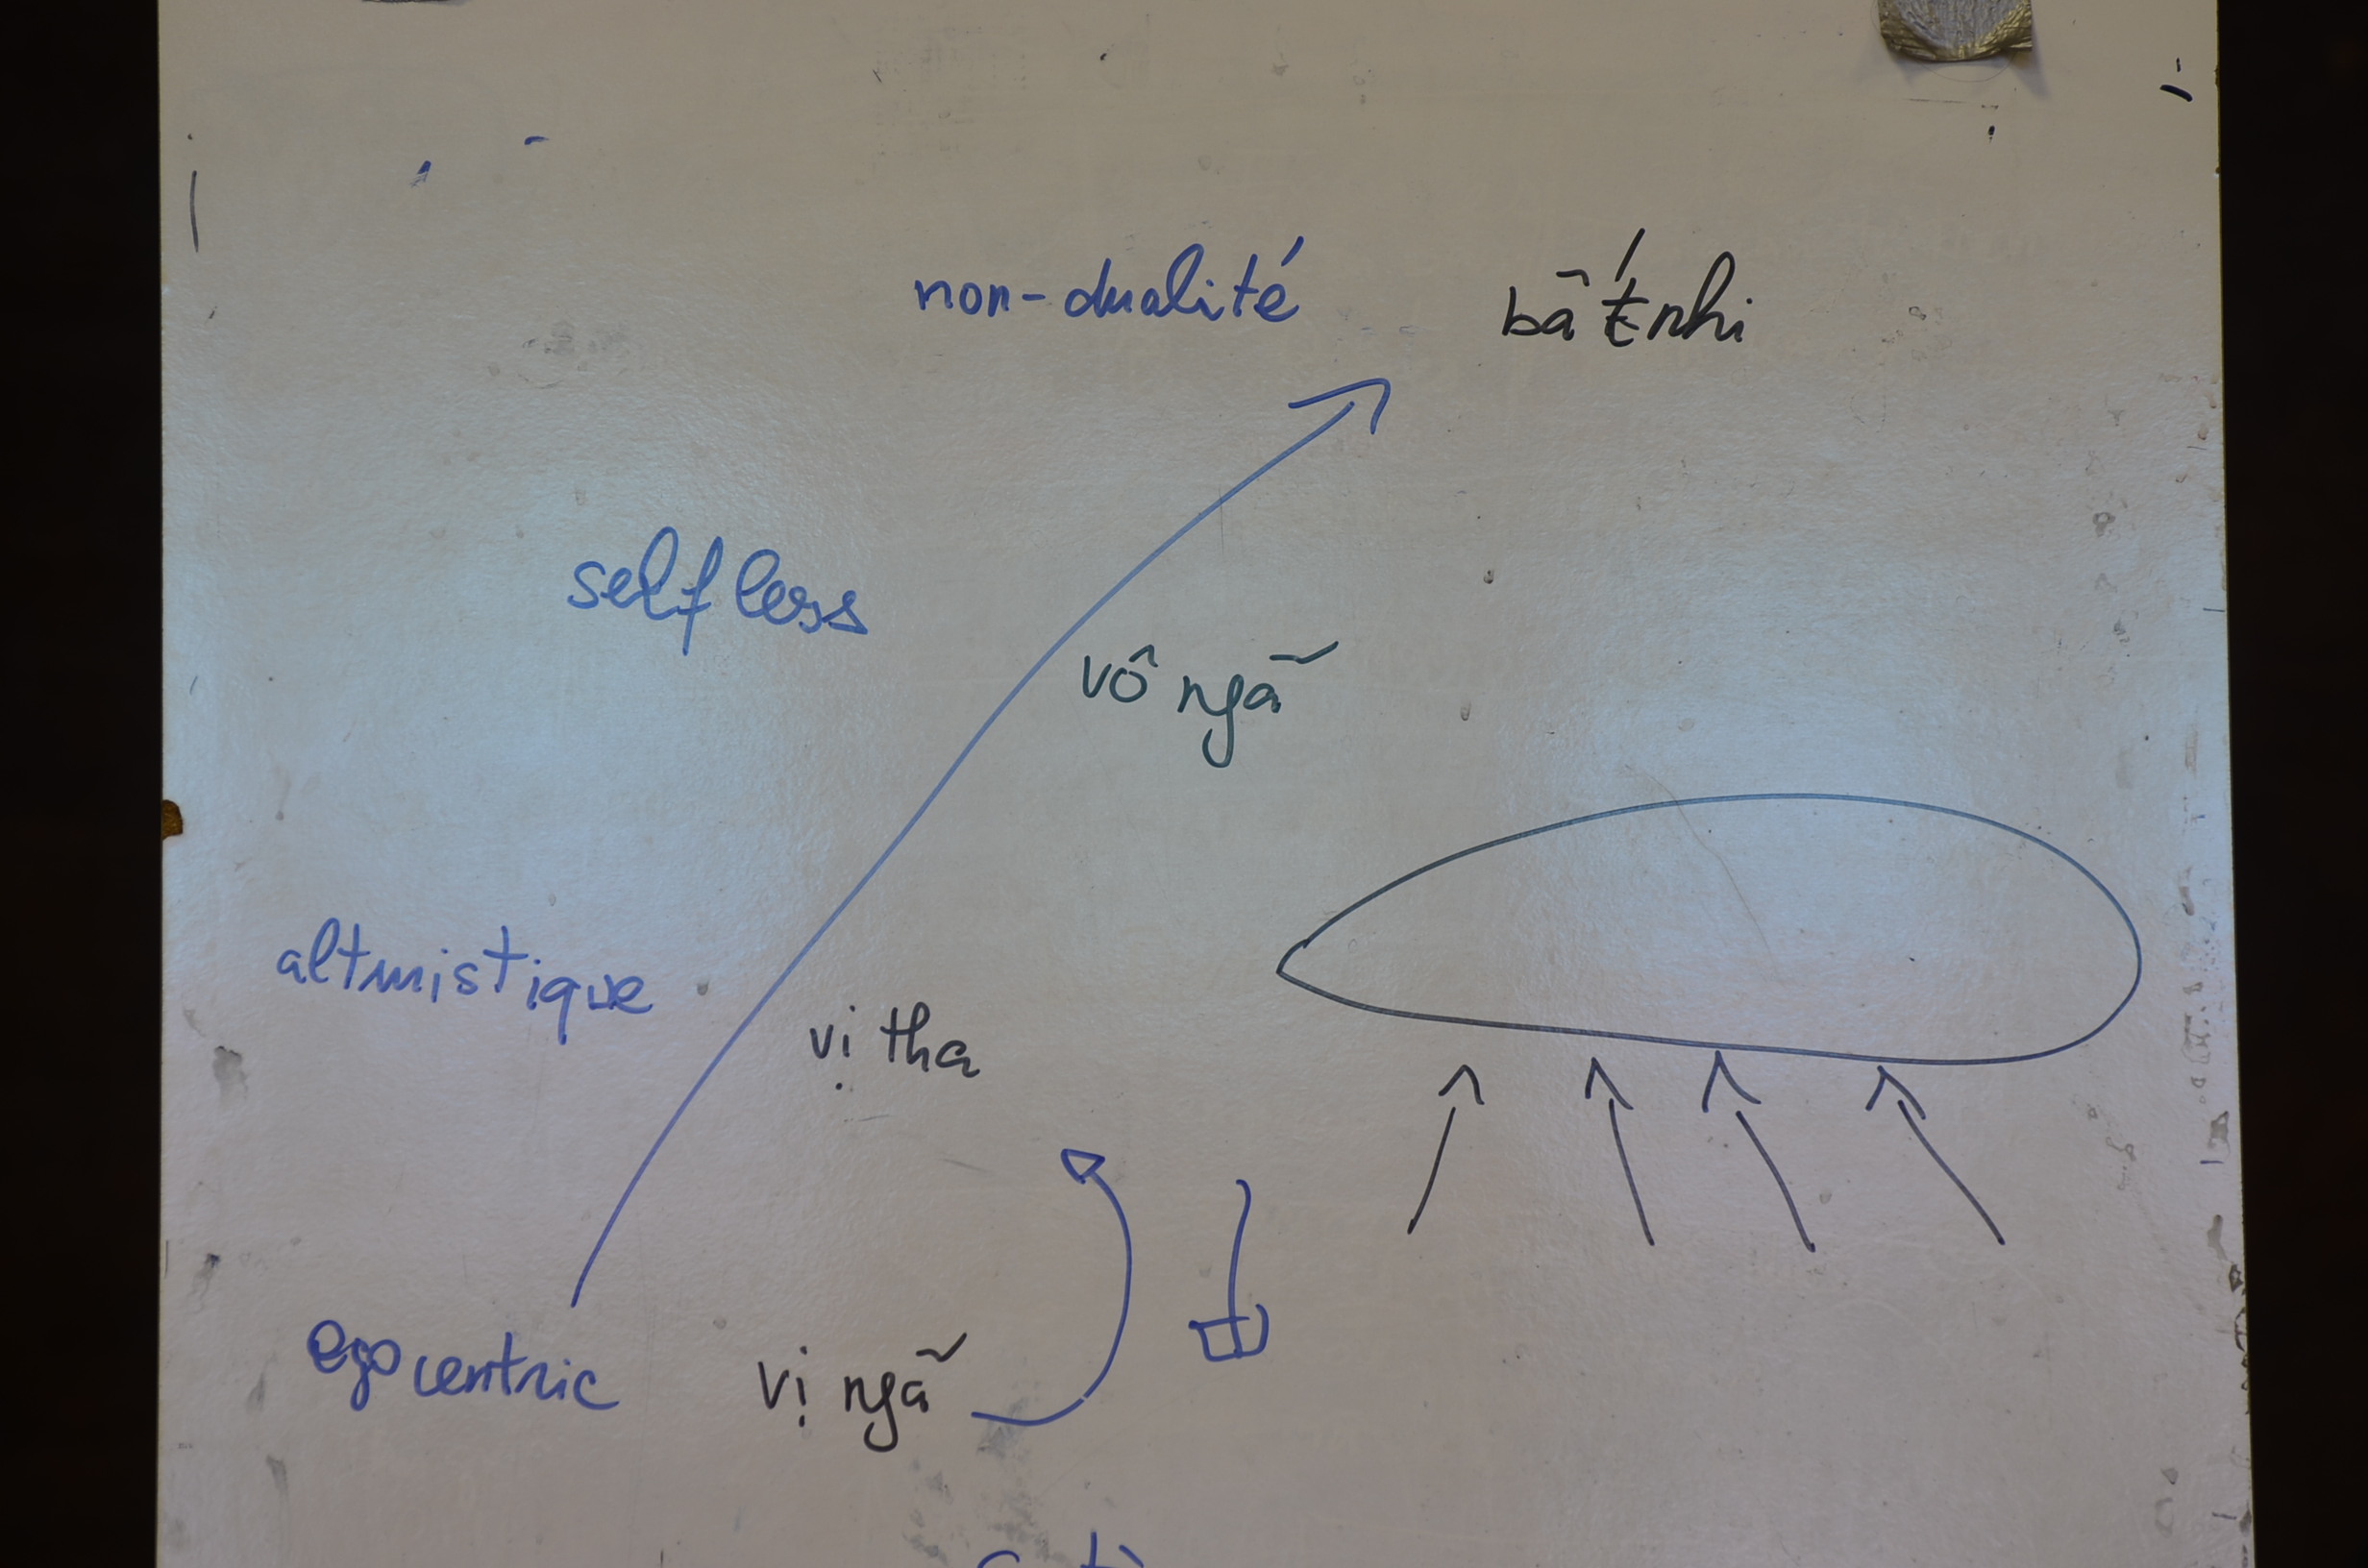 non-dualité
bất nhi
selfless
vô ngã
altruistique
vị tha
egocentric
vị ngã